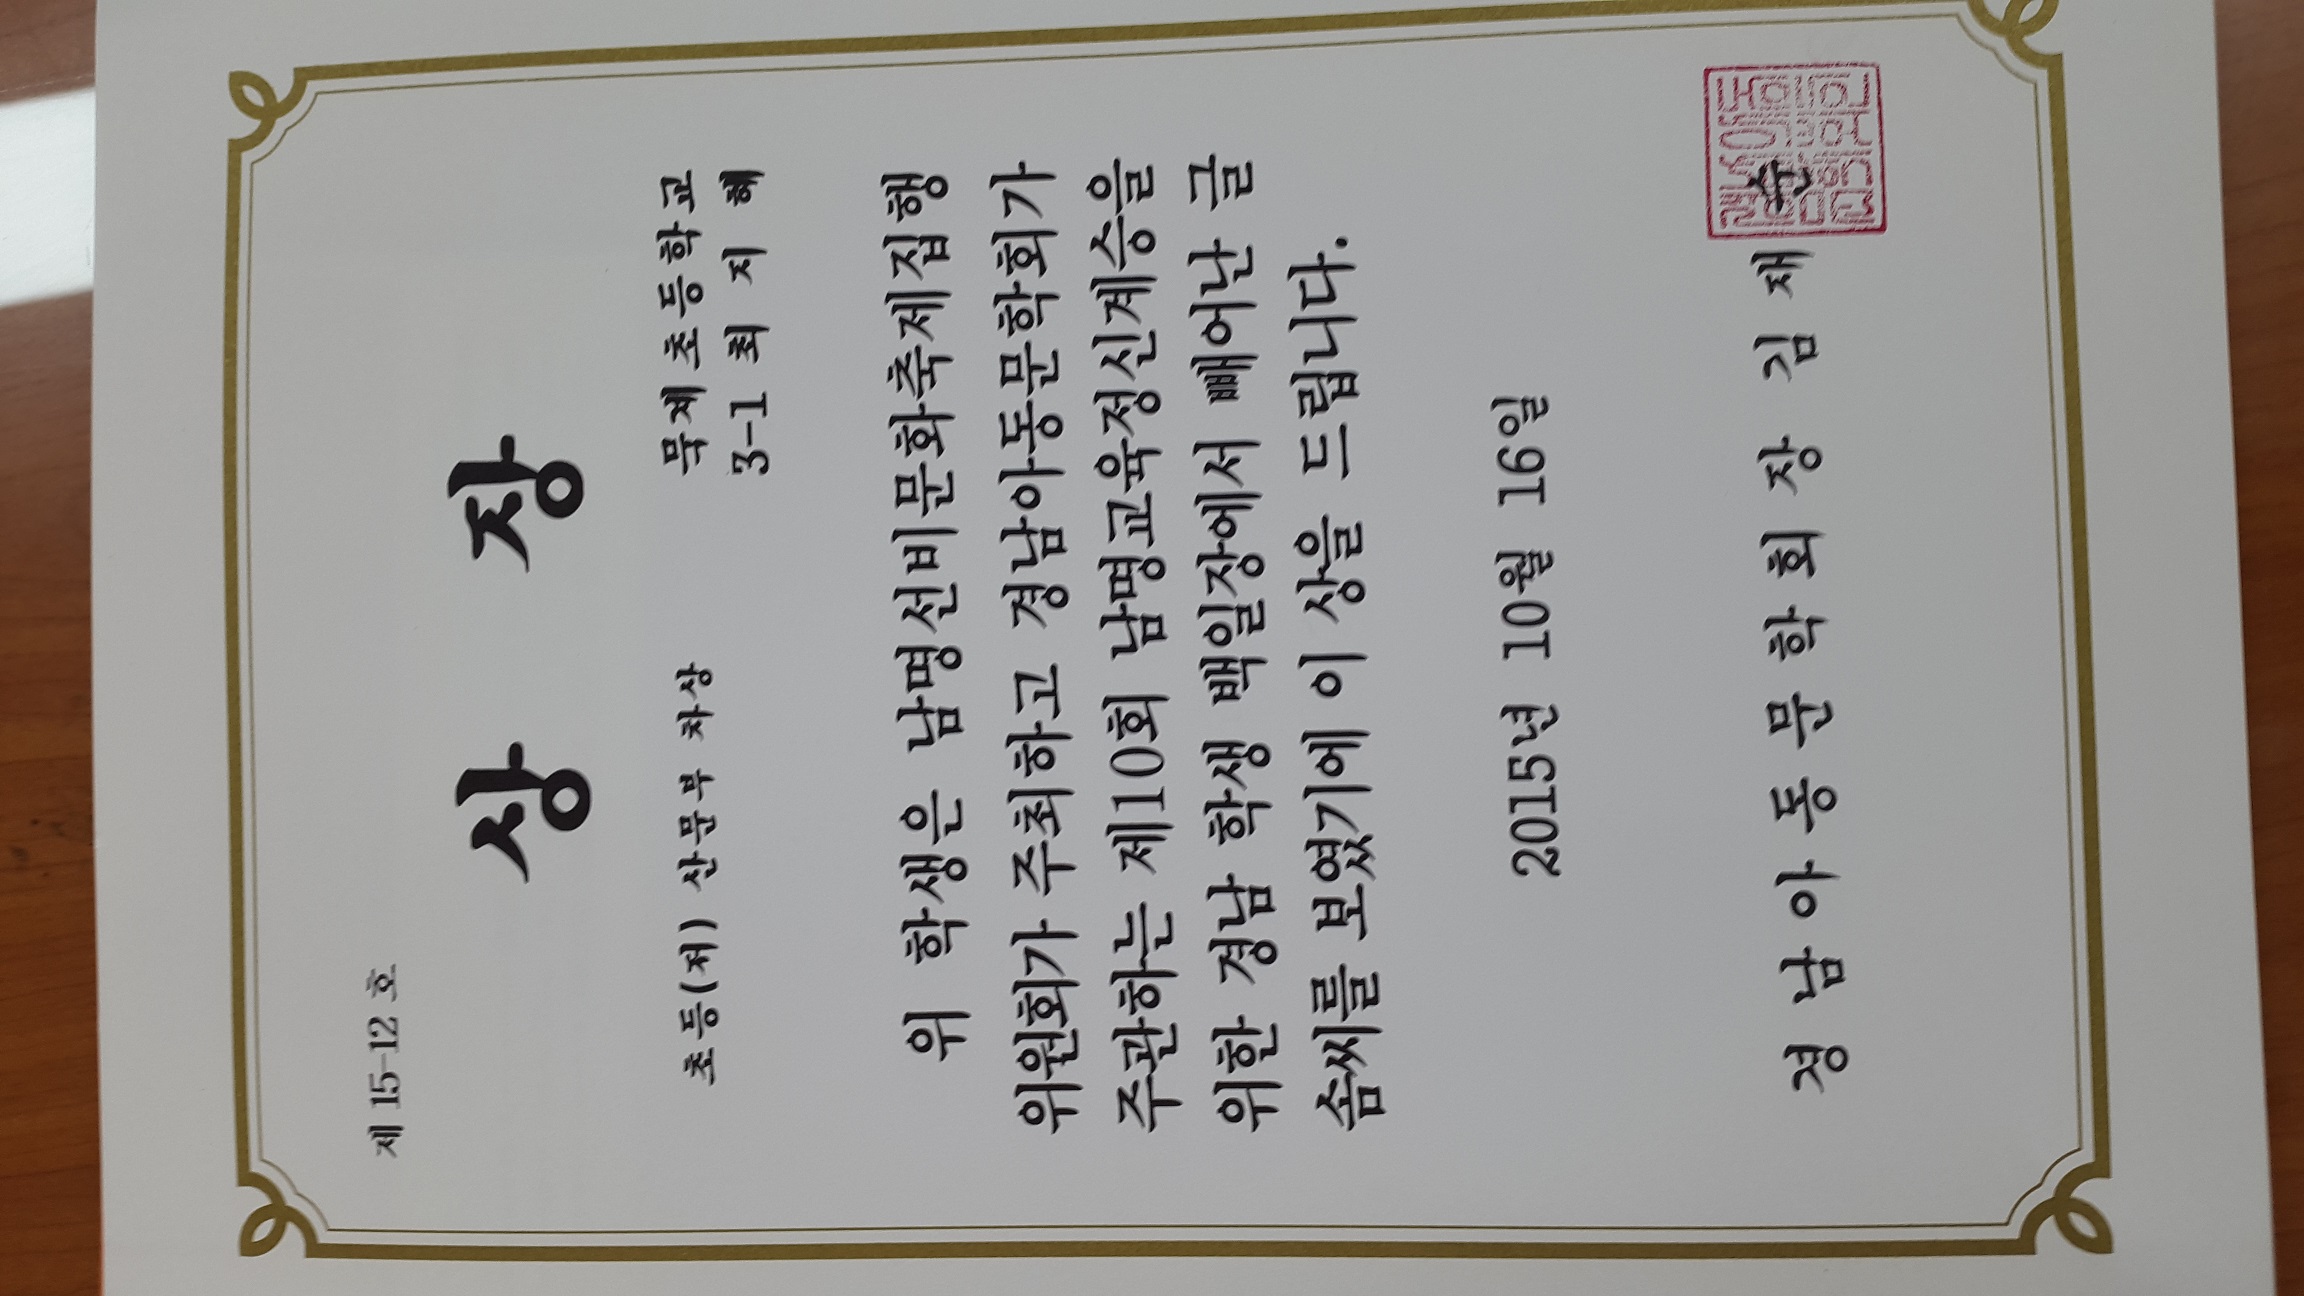 제 15-12 호
상 장
초등(저) 산문부 차상
묵계초등학교
3-1 최 지 혜
위 학생은 남명선비문화축제집행
위원회가 주최하고 경남아동문학회가
주관하는 제10회 남명교육정신계승을
위한 경남 학생 백일장에서 빼어난 글
솜씨를 보였기에 이 상을 드립니다.
2015년 10월 16일
경 남 아 동 문 학 회 장 김 재 순